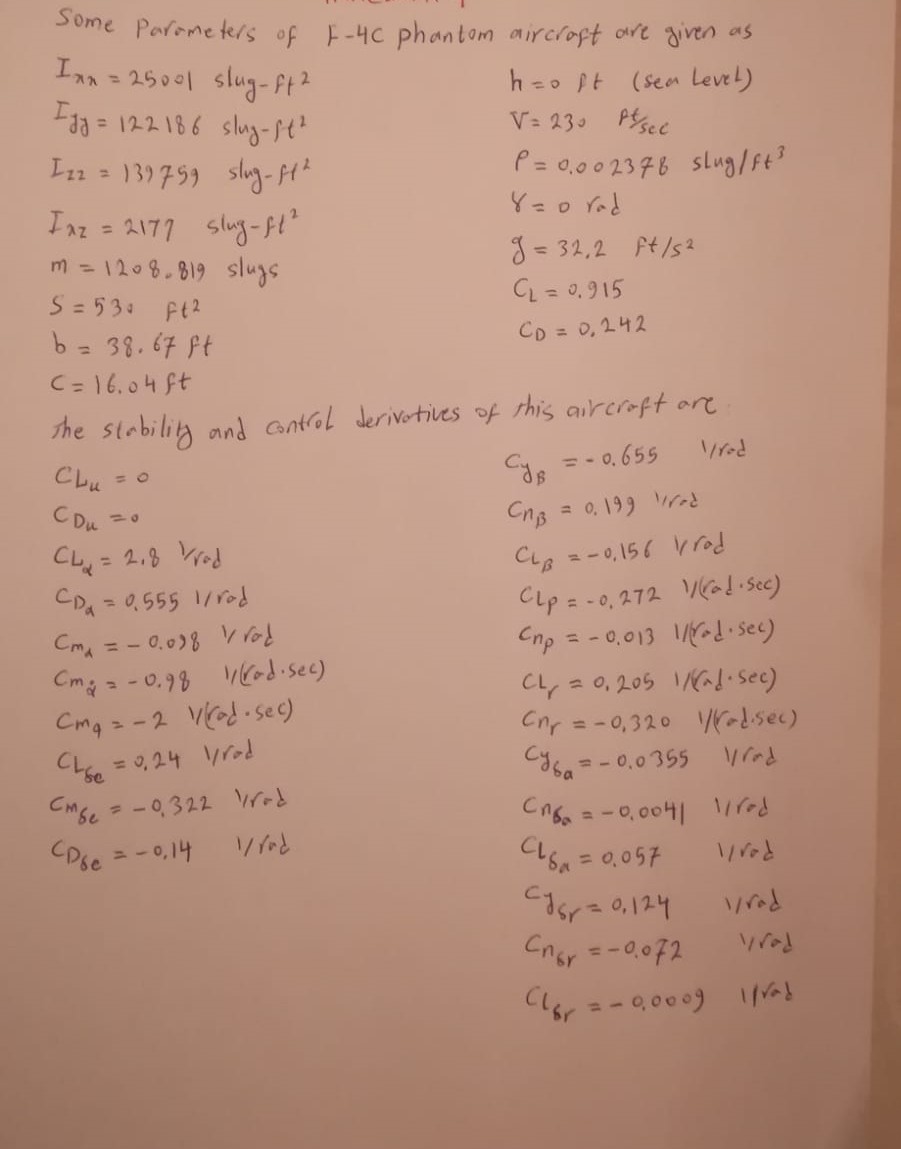 Some Parameters of F-4C phantom aircraft are given as
Ixx = 25001 slug-ft²
Iyy = 122186 slug-ft²
Izz = 139759 slug-ft²
Ixz = 2177 slug-ft²
m = 1208.819 slugs
S = 530 ft²
b = 38.67 ft
C = 16.04 ft
h = 0 ft (sea Level)
V = 230 ft/sec
ρ = 0.002378 slug/ft³
γ = 0 rad
g = 32,2 ft/s²
CL = 0.915
CD = 0,242
the stability and control derivatives of this aircraft are
CLu = 0
CDu = 0
CLα = 2.8 1/rad
CDα = 0.555 1/rad
Cmα = -0.098 1/rad
Cmα̇ = -0.98 1/(rad.sec)
Cmq = -2 1/(rad.sec)
CLδe = 0,24 1/rad
Cmδe = -0,322 1/rad
CDδe = -0,14 1/rad
Cyβ = -0.655 1/rad
Cnβ = 0.199 1/rad
CLβ = -0,156 1/rad
CLp = -0,272 1/(rad.sec)
Cnp = -0.013 1/(rad.sec)
CLr = 0,205 1/(rad.sec)
Cnr = -0,320 1/(rad.sec)
Cyδa = -0,0355 1/rad
Cnδa = -0,0041 1/rad
CLδa = 0,057 1/rad
Cyδr = 0,124 1/rad
Cnδr = -0.072 1/rad
CLδr = -0,0009 1/rad